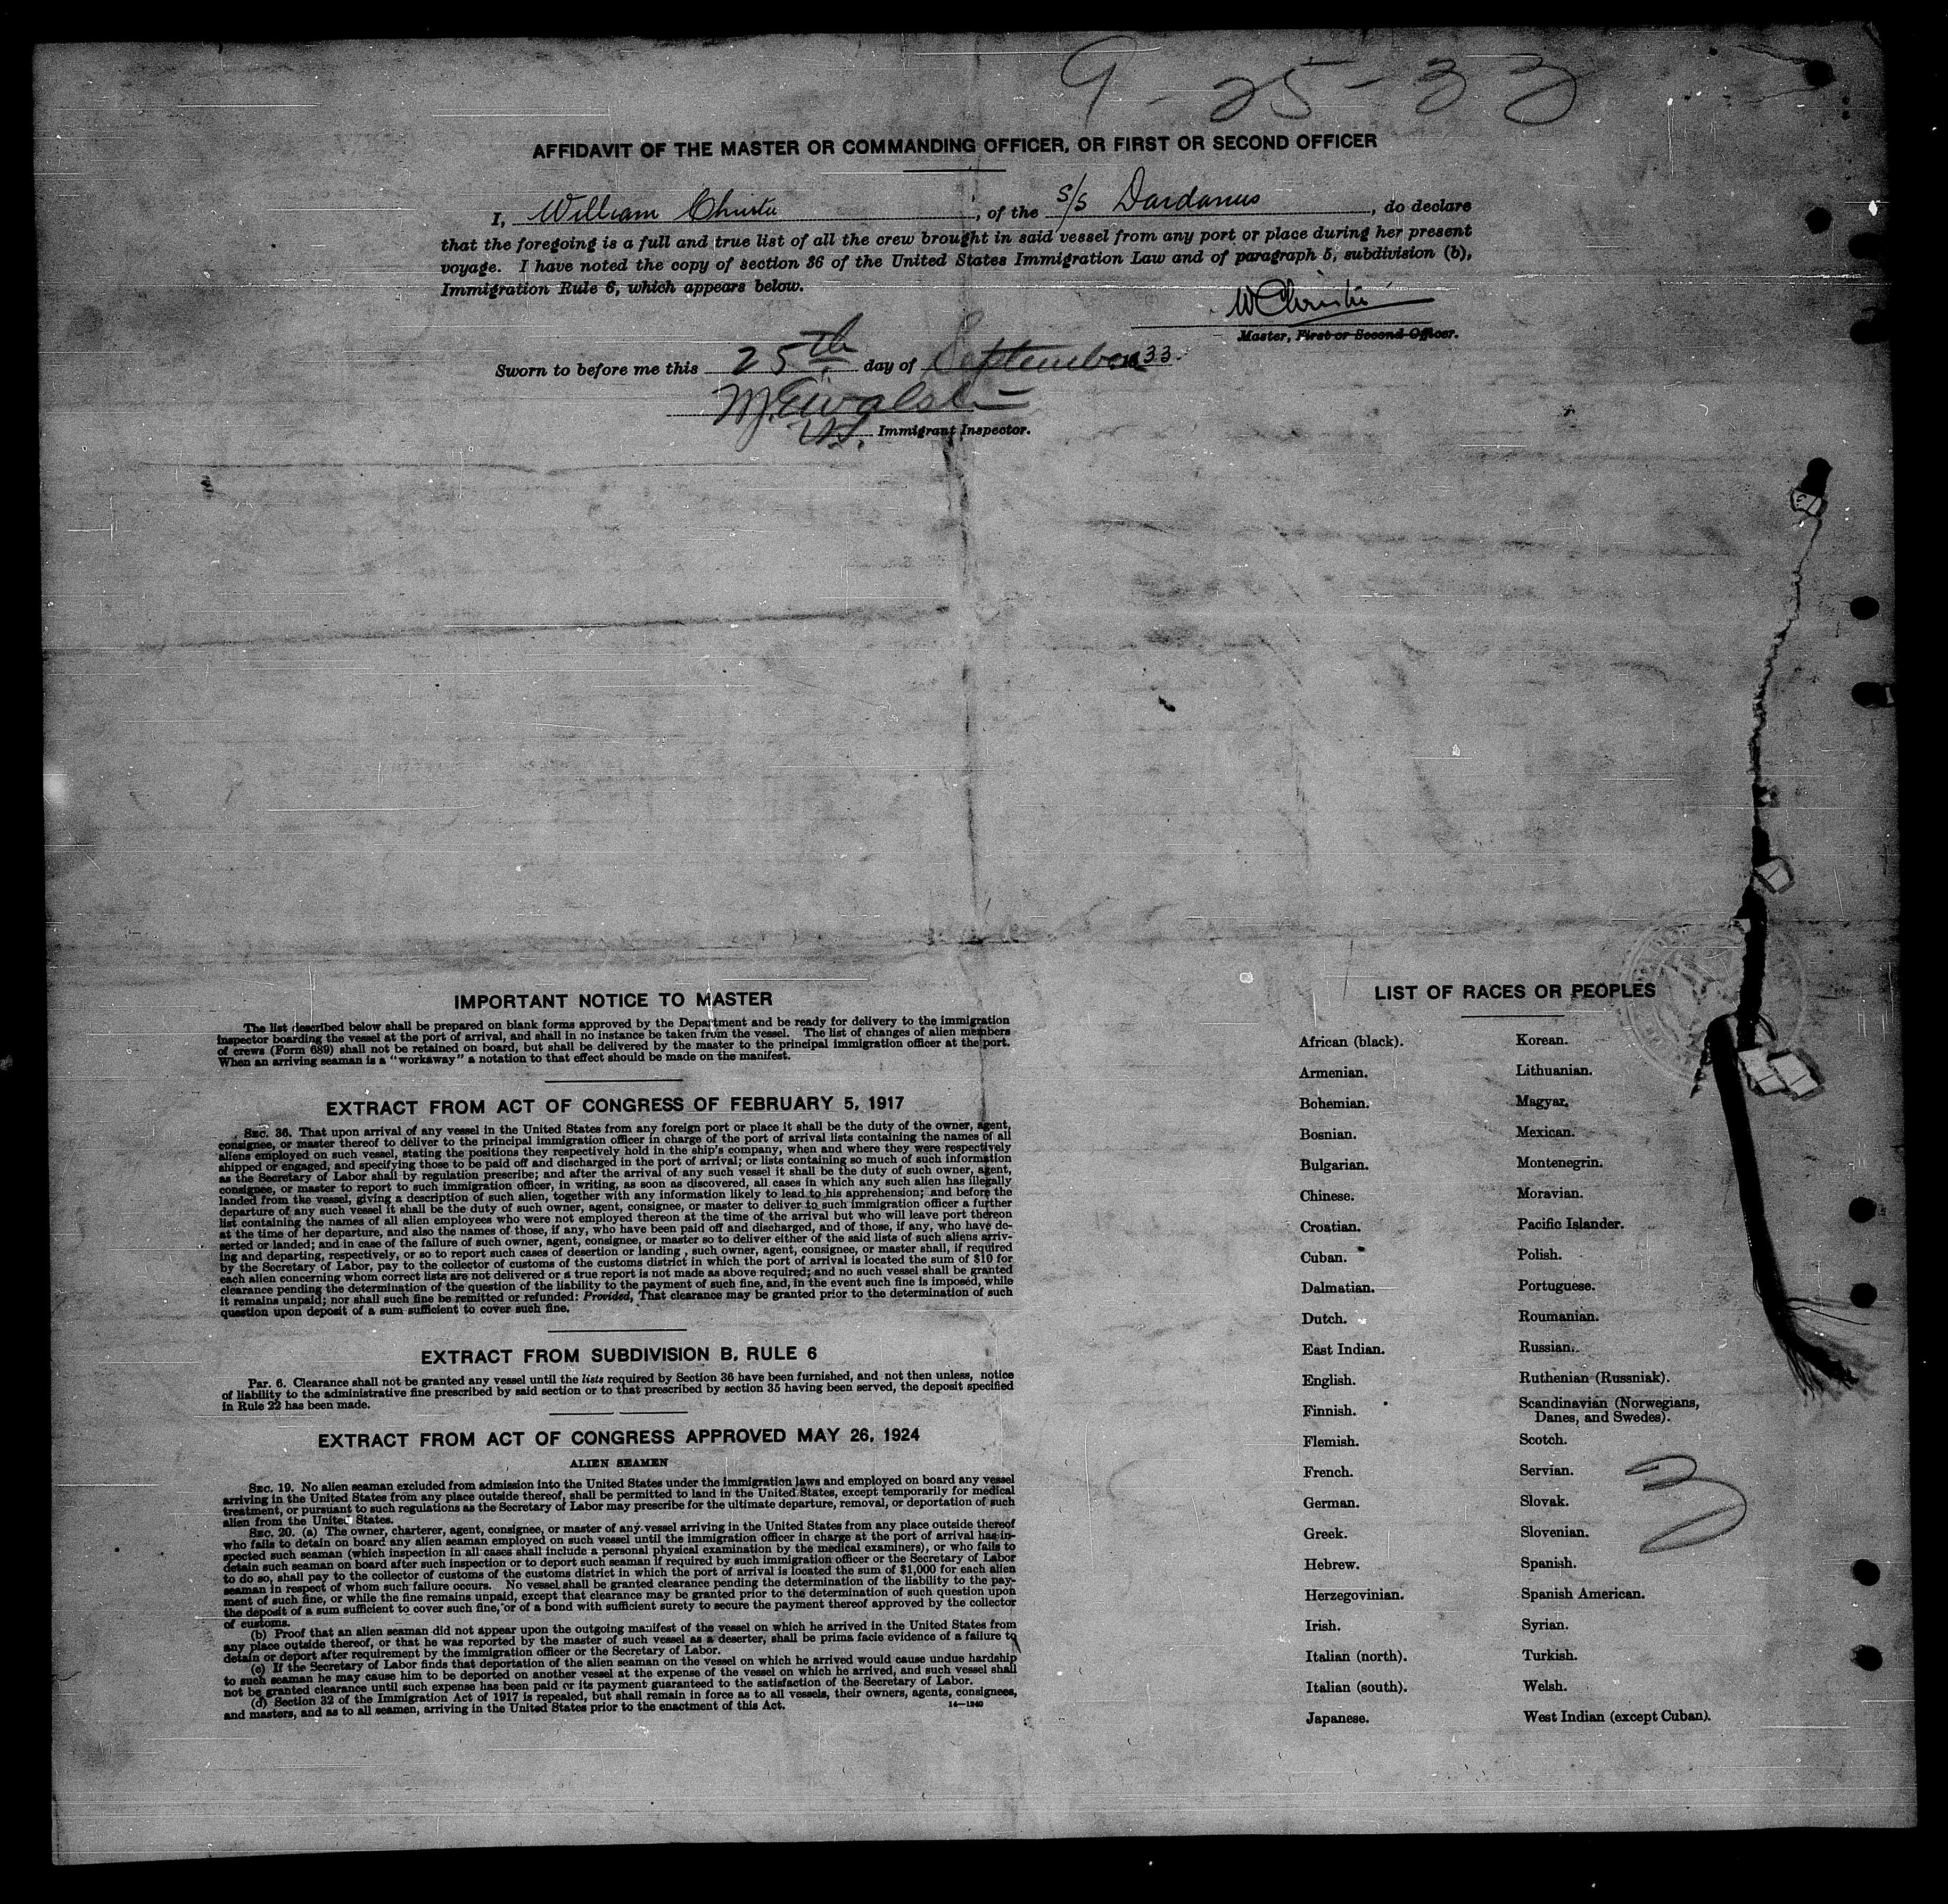 9-25-33
AFFIDAVIT OF THE MASTER OR COMMANDING OFFICER, OR FIRST OR SECOND OFFICER
I, William Christie, of the S/S Dardanus, do declare
that the foregoing is a full and true list of all the crew brought in said vessel from any port or place during her present
voyage. I have noted the copy of section 36 of the United States Immigration Law and of paragraph 5, subdivision (b),
Immigration Rule 6, which appears below.
W Christie
Master, First or Second Officer.
Sworn to before me this 25th day of September 33.
Immigrant Inspector.
IMPORTANT NOTICE TO MASTER
The list described below shall be prepared on blank forms approved by the Department and be ready for delivery to the immigration
inspector boarding the vessel at the port of arrival, and shall in no instance be taken from the vessel. The list of changes of alien members
of crews (Form 689) shall not be retained on board, but shall be delivered by the master to the principal immigration officer at the port.
When an arriving seaman is a "workaway" a notation to that effect should be made on the manifest.
EXTRACT FROM ACT OF CONGRESS OF FEBRUARY 5, 1917
SEC. 36. That upon arrival of any vessel in the United States from any foreign port or place it shall be the duty of the owner, agent,
consignee, or master thereof to deliver to the principal immigration officer in charge of the port of arrival lists containing the names of all
aliens employed on such vessel, stating the positions they respectively hold in the ship's company, when and where they were respectively
shipped or engaged, and specifying those to be paid off and discharged in the port of arrival; or lists containing so much of such information
as the Secretary of Labor shall by regulation prescribe; and after the arrival of any such vessel it shall be the duty of such owner, agent,
consignee, or master to report to such immigration officer, in writing, as soon as discovered, all cases in which any such alien has illegally
landed from the vessel, giving a description of such alien, together with any information likely to lead to his apprehension; and before the
departure of any such vessel it shall be the duty of such owner, agent, consignee, or master to deliver to such immigration officer a further
list containing the names of all alien employees who were not employed thereon at the time of the arrival but who will leave port thereon
at the time of her departure, and also the names of those, if any, who have been paid off and discharged, and of those, if any, who have de-
serted or landed; and in case of the failure of such owner, agent, consignee, or master so to deliver either of the said lists of such aliens arriv-
ing and departing, respectively, or so to report such cases of desertion or landing, such owner, agent, consignee, or master shall, if required
by the Secretary of Labor, pay to the collector of customs of the customs district in which the port of arrival is located the sum of $10 for
each alien concerning whom correct lists are not delivered or a true report is not made as above required; and no such vessel shall be granted
clearance pending the determination of the question of the liability to the payment of such fine, and, in the event such fine is imposed, while
it remains unpaid; nor shall such fine be remitted or refunded: Provided, That clearance may be granted prior to the determination of such
question upon deposit of a sum sufficient to cover such fine.
EXTRACT FROM SUBDIVISION B, RULE 6
Par. 6. Clearance shall not be granted any vessel until the lists required by Section 36 have been furnished, and not then unless, notice
of liability to the administrative fine prescribed by said section or to that prescribed by section 35 having been served, the deposit specified
in Rule 22 has been made.
EXTRACT FROM ACT OF CONGRESS APPROVED MAY 26, 1924
ALIEN SEAMEN
SEC. 19. No alien seaman excluded from admission into the United States under the immigration laws and employed on board any vessel
arriving in the United States from any place outside thereof, shall be permitted to land in the United States, except temporarily for medical
treatment, or pursuant to such regulations as the Secretary of Labor may prescribe for the ultimate departure, removal, or deportation of such
alien from the United States.
SEC. 20. (a) The owner, charterer, agent, consignee, or master of any vessel arriving in the United States from any place outside thereof
who fails to detain on board any alien seaman employed on such vessel until the immigration officer in charge at the port of arrival has in-
spected such seaman (which inspection in all cases shall include a personal physical examination by the medical examiners), or who fails to
detain such seaman on board after such inspection or to deport such seaman if required by such immigration officer or the Secretary of Labor
to do so, shall pay to the collector of customs of the customs district in which the port of arrival is located the sum of $1,000 for each alien
seaman in respect of whom such failure occurs. No vessel shall be granted clearance pending the determination of the liability to the pay-
ment of such fine, or while the fine remains unpaid, except that clearance may be granted prior to the determination of such question upon
the deposit of a sum sufficient to cover such fine, or of a bond with sufficient surety to secure the payment thereof approved by the collector
of customs.
(b) Proof that an alien seaman did not appear upon the outgoing manifest of the vessel on which he arrived in the United States from
any place outside thereof, or that he was reported by the master of such vessel as a deserter, shall be prima facie evidence of a failure to
detain or deport after requirement by the immigration officer or the Secretary of Labor.
(c) If the Secretary of Labor finds that deportation of the alien seaman on the vessel on which he arrived would cause undue hardship
to such seaman he may cause him to be deported on another vessel at the expense of the vessel on which he arrived, and such vessel shall
not be granted clearance until such expense has been paid or its payment guaranteed to the satisfaction of the Secretary of Labor.
(d) Section 32 of the Immigration Act of 1917 is repealed, but shall remain in force as to all vessels, their owners, agents, consignees,
and masters, and as to all seamen, arriving in the United States prior to the enactment of this Act.
14—1240
LIST OF RACES OR PEOPLES
African (black).
Armenian.
Bohemian.
Bosnian.
Bulgarian.
Chinese.
Croatian.
Cuban.
Dalmatian.
Dutch.
East Indian.
English.
Finnish.
Flemish.
French.
German.
Greek.
Hebrew.
Herzegovinian.
Irish.
Italian (north).
Italian (south).
Japanese.
Korean.
Lithuanian.
Magyar.
Mexican.
Montenegrin.
Moravian.
Pacific Islander.
Polish.
Portuguese.
Roumanian.
Russian.
Ruthenian (Russniak).
Scandinavian (Norwegians,
Danes, and Swedes).
Scotch.
Servian.
Slovak.
Slovenian.
Spanish.
Spanish American.
Syrian.
Turkish.
Welsh.
West Indian (except Cuban).
3